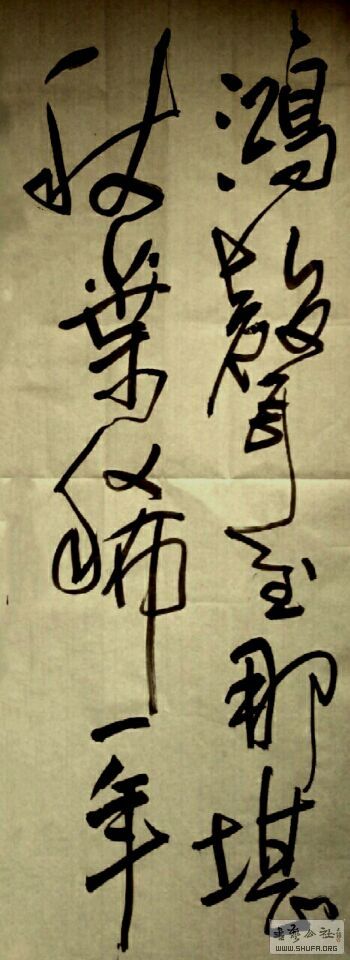 鴻聲至那堪
秋葉稀一年
書藝公社
WWW.SHUFA.ORG